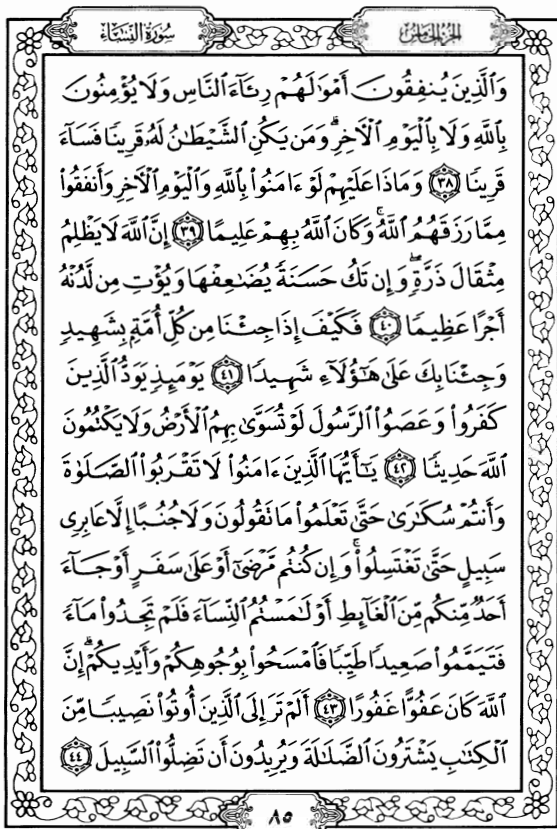 سُورَةُ النِّسَاءِ الجُزْءُ الخَامِسُ
وَٱلَّذِينَ يُنفِقُونَ أَمْوَٰلَهُمْ رِئَآءَ ٱلنَّاسِ وَلَا يُؤْمِنُونَ
بِٱللَّهِ وَلَا بِٱلْيَوْمِ ٱلْءَاخِرِ ۗ وَمَن يَكُنِ ٱلشَّيْطَٰنُ لَهُۥ قَرِينًا فَسَآءَ
قَرِينًا ٣٨ وَمَاذَا عَلَيْهِمْ لَوْ ءَامَنُوا۟ بِٱللَّهِ وَٱلْيَوْمِ ٱلْءَاخِرِ وَأَنفَقُوا۟
مِمَّا رَزَقَهُمُ ٱللَّهُ ۚ وَكَانَ ٱللَّهُ بِهِمْ عَلِيمًا ٣٩ إِنَّ ٱللَّهَ لَا يَظْلِمُ
مِثْقَالَ ذَرَّةٍ ۖ وَإِن تَكُ حَسَنَةً يُضَٰعِفْهَا وَيُؤْتِ مِن لَّدُنْهُ
أَجْرًا عَظِيمًا ٤٠ فَكَيْفَ إِذَا جِئْنَا مِن كُلِّ أُمَّةٍۭ بِشَهِيدٍ
وَجِئْنَا بِكَ عَلَىٰ هَٰٓؤُلَآءِ شَهِيدًا ٤١ يَوْمَئِذٍ يَوَدُّ ٱلَّذِينَ
كَفَرُوا۟ وَعَصَوُا۟ ٱلرَّسُولَ لَوْ تُسَوَّىٰ بِهِمُ ٱلْأَرْضُ وَلَا يَكْتُمُونَ
ٱللَّهَ حَدِيثًا ٤٢ يَٰٓأَيُّهَا ٱلَّذِينَ ءَامَنُوا۟ لَا تَقْرَبُوا۟ ٱلصَّلَوٰةَ
وَأَنتُمْ سُكَٰرَىٰ حَتَّىٰ تَعْلَمُوا۟ مَا تَقُولُونَ وَلَا جُنُبًا إِلَّا عَابِرِى
سَبِيلٍ حَتَّىٰ تَغْتَسِلُوا۟ ۚ وَإِن كُنتُم مَّرْضَىٰٓ أَوْ عَلَىٰ سَفَرٍ أَوْ جَآءَ
أَحَدٌ مِّنكُم مِّنَ ٱلْغَآئِطِ أَوْ لَٰمَسْتُمُ ٱلنِّسَآءَ فَلَمْ تَجِدُوا۟ مَآءً
فَتَيَمَّمُوا۟ صَعِيدًا طَيِّبًا فَٱمْسَحُوا۟ بِوُجُوهِكُمْ وَأَيْدِيكُمْ ۗ إِنَّ
ٱللَّهَ كَانَ عَفُوًّا غَفُورًا ٤٣ أَلَمْ تَرَ إِلَى ٱلَّذِينَ أُوتُوا۟ نَصِيبًا مِّنَ
ٱلْكِتَٰبِ يَشْتَرُونَ ٱلضَّلَٰلَةَ وَيُرِيدُونَ أَن تَضِلُّوا۟ ٱلسَّبِيلَ ٤٤
٨٥